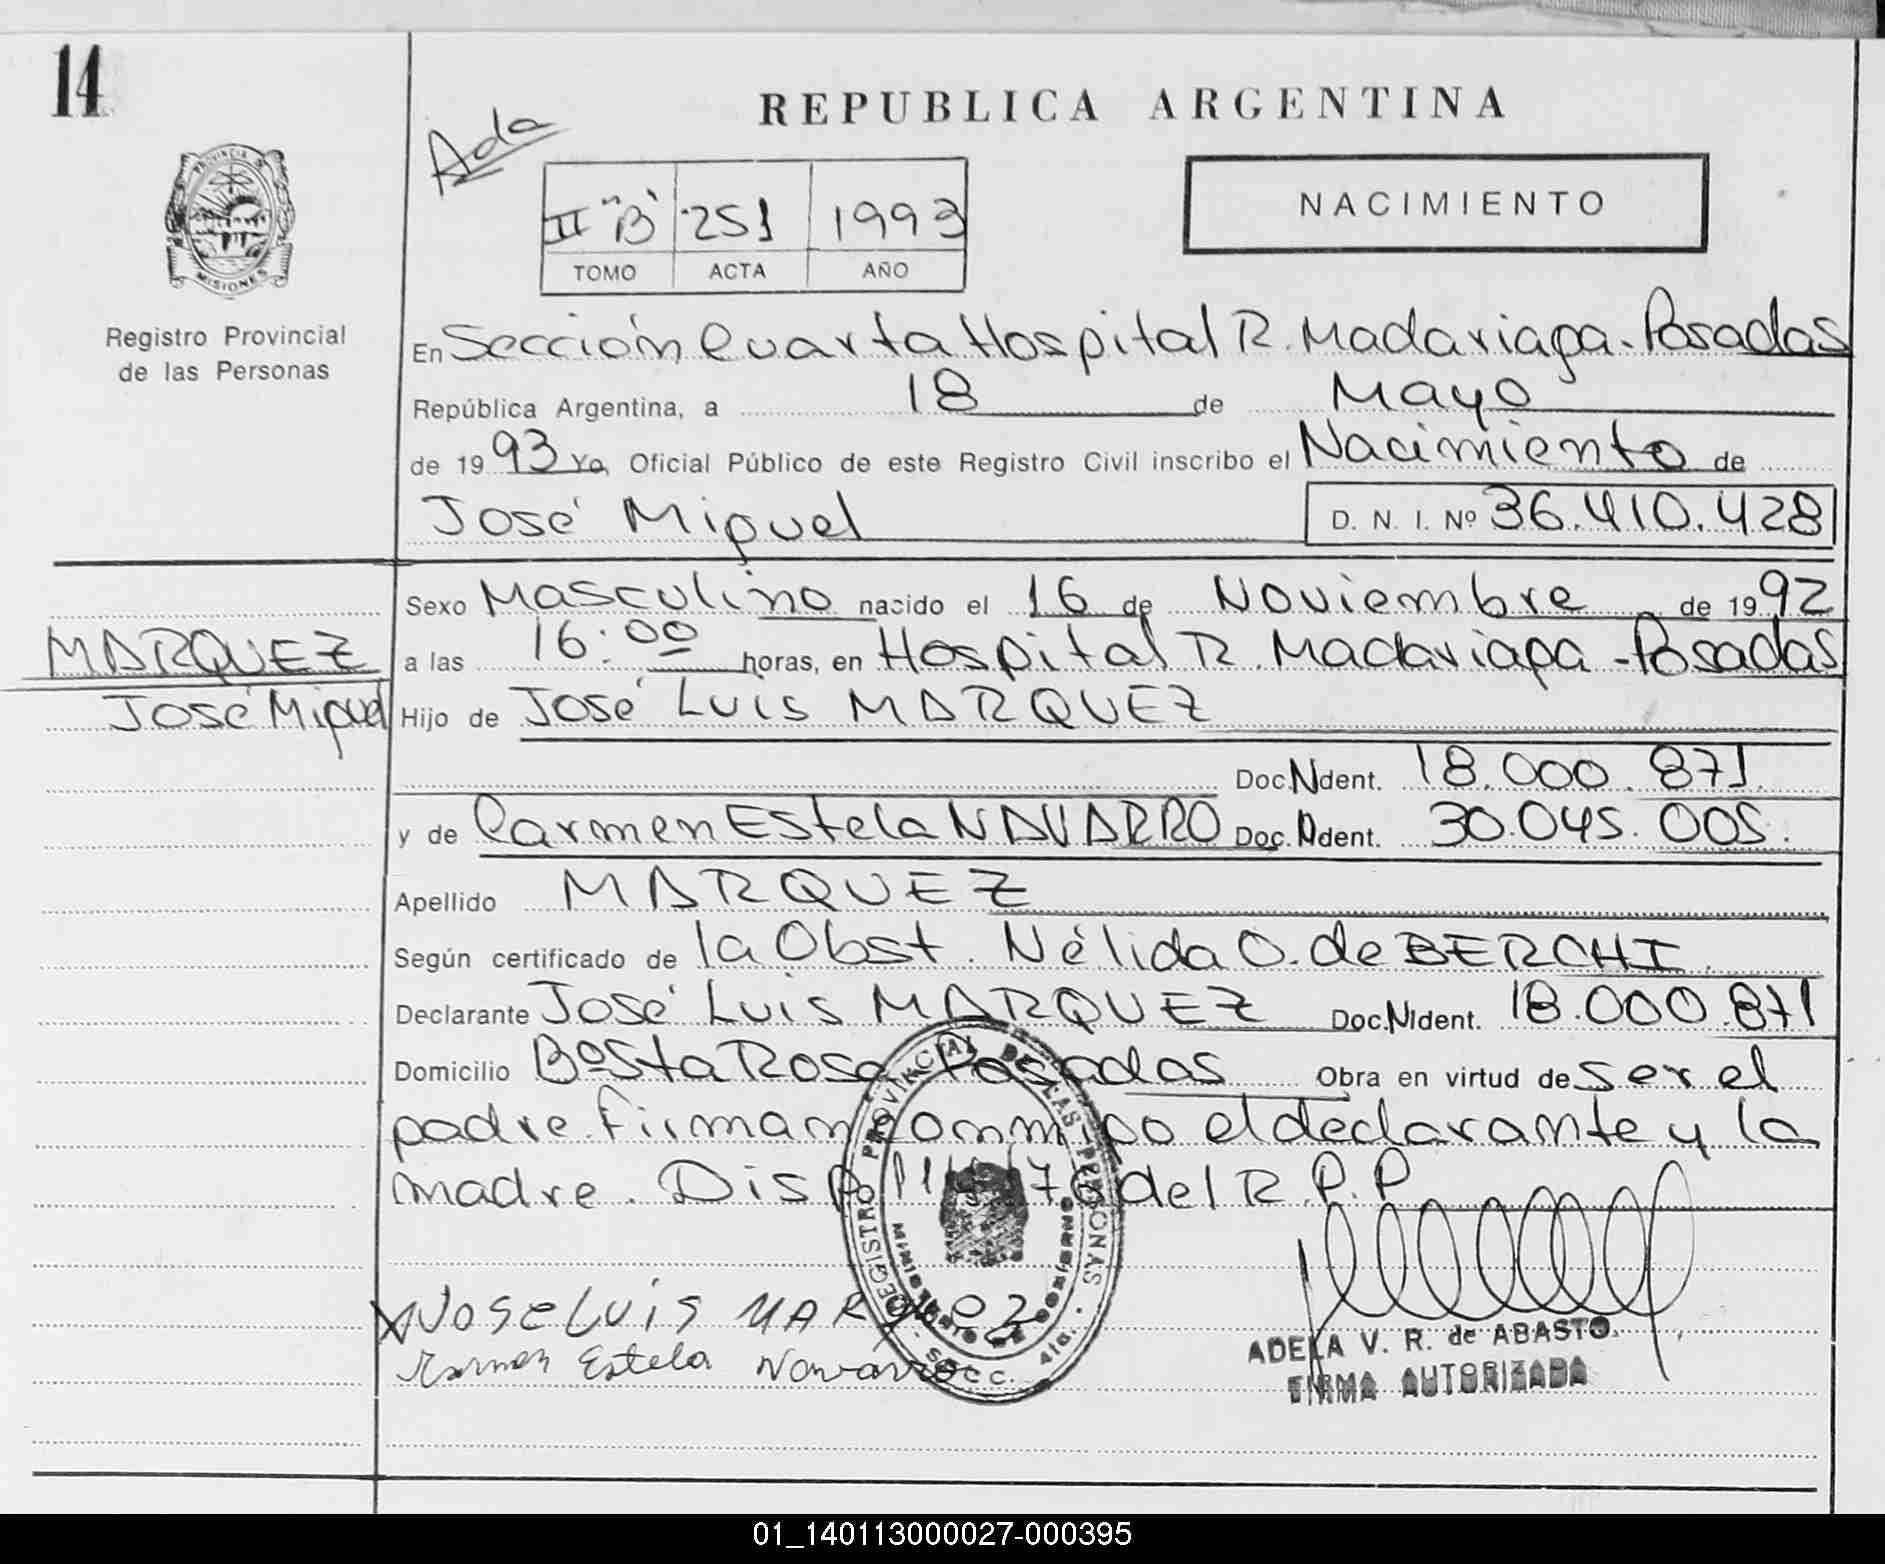 14
REPUBLICA ARGENTINA
Ada
II "B" 251 1993
TOMO ACTA AÑO
NACIMIENTO
PROVINCIA DE
MISIONES
Registro Provincial
de las Personas
En Sección Cuarta Hospital R. Madariaga - Posadas
República Argentina, a 18 de Mayo
de 1993 Yo, Oficial Público de este Registro Civil inscribo el Nacimiento de
José Miguel D. N. I. Nº 36.410.428
MARQUEZ
José Miguel
Sexo Masculino nacido el 16 de Noviembre de 1992
a las 16:00 horas, en Hospital R. Madariaga - Posadas
Hijo de José Luis MARQUEZ
Doc. N Ident. 18.000.871
y de Carmen Estela NAVARRO Doc. N Ident. 30.045.005.
Apellido MARQUEZ
Según certificado de la Obst. Nélida O. de BERCHI
Declarante José Luis MARQUEZ Doc. N Ident. 18.000.871
Domicilio Bº Sta Rosa Posadas Obra en virtud de ser el
padre. Firman conmigo el declarante y la
madre. Disp. del R.P.P
REGISTRO PROVINCIAL DE LAS PERSONAS
MINISTERIO DE GOBIERNO
Jose Luis MARquez
Karmen Estela Navarro
ADELA V. R. de ABASTO
FIRMA AUTORIZADA
01_140113000027-000395